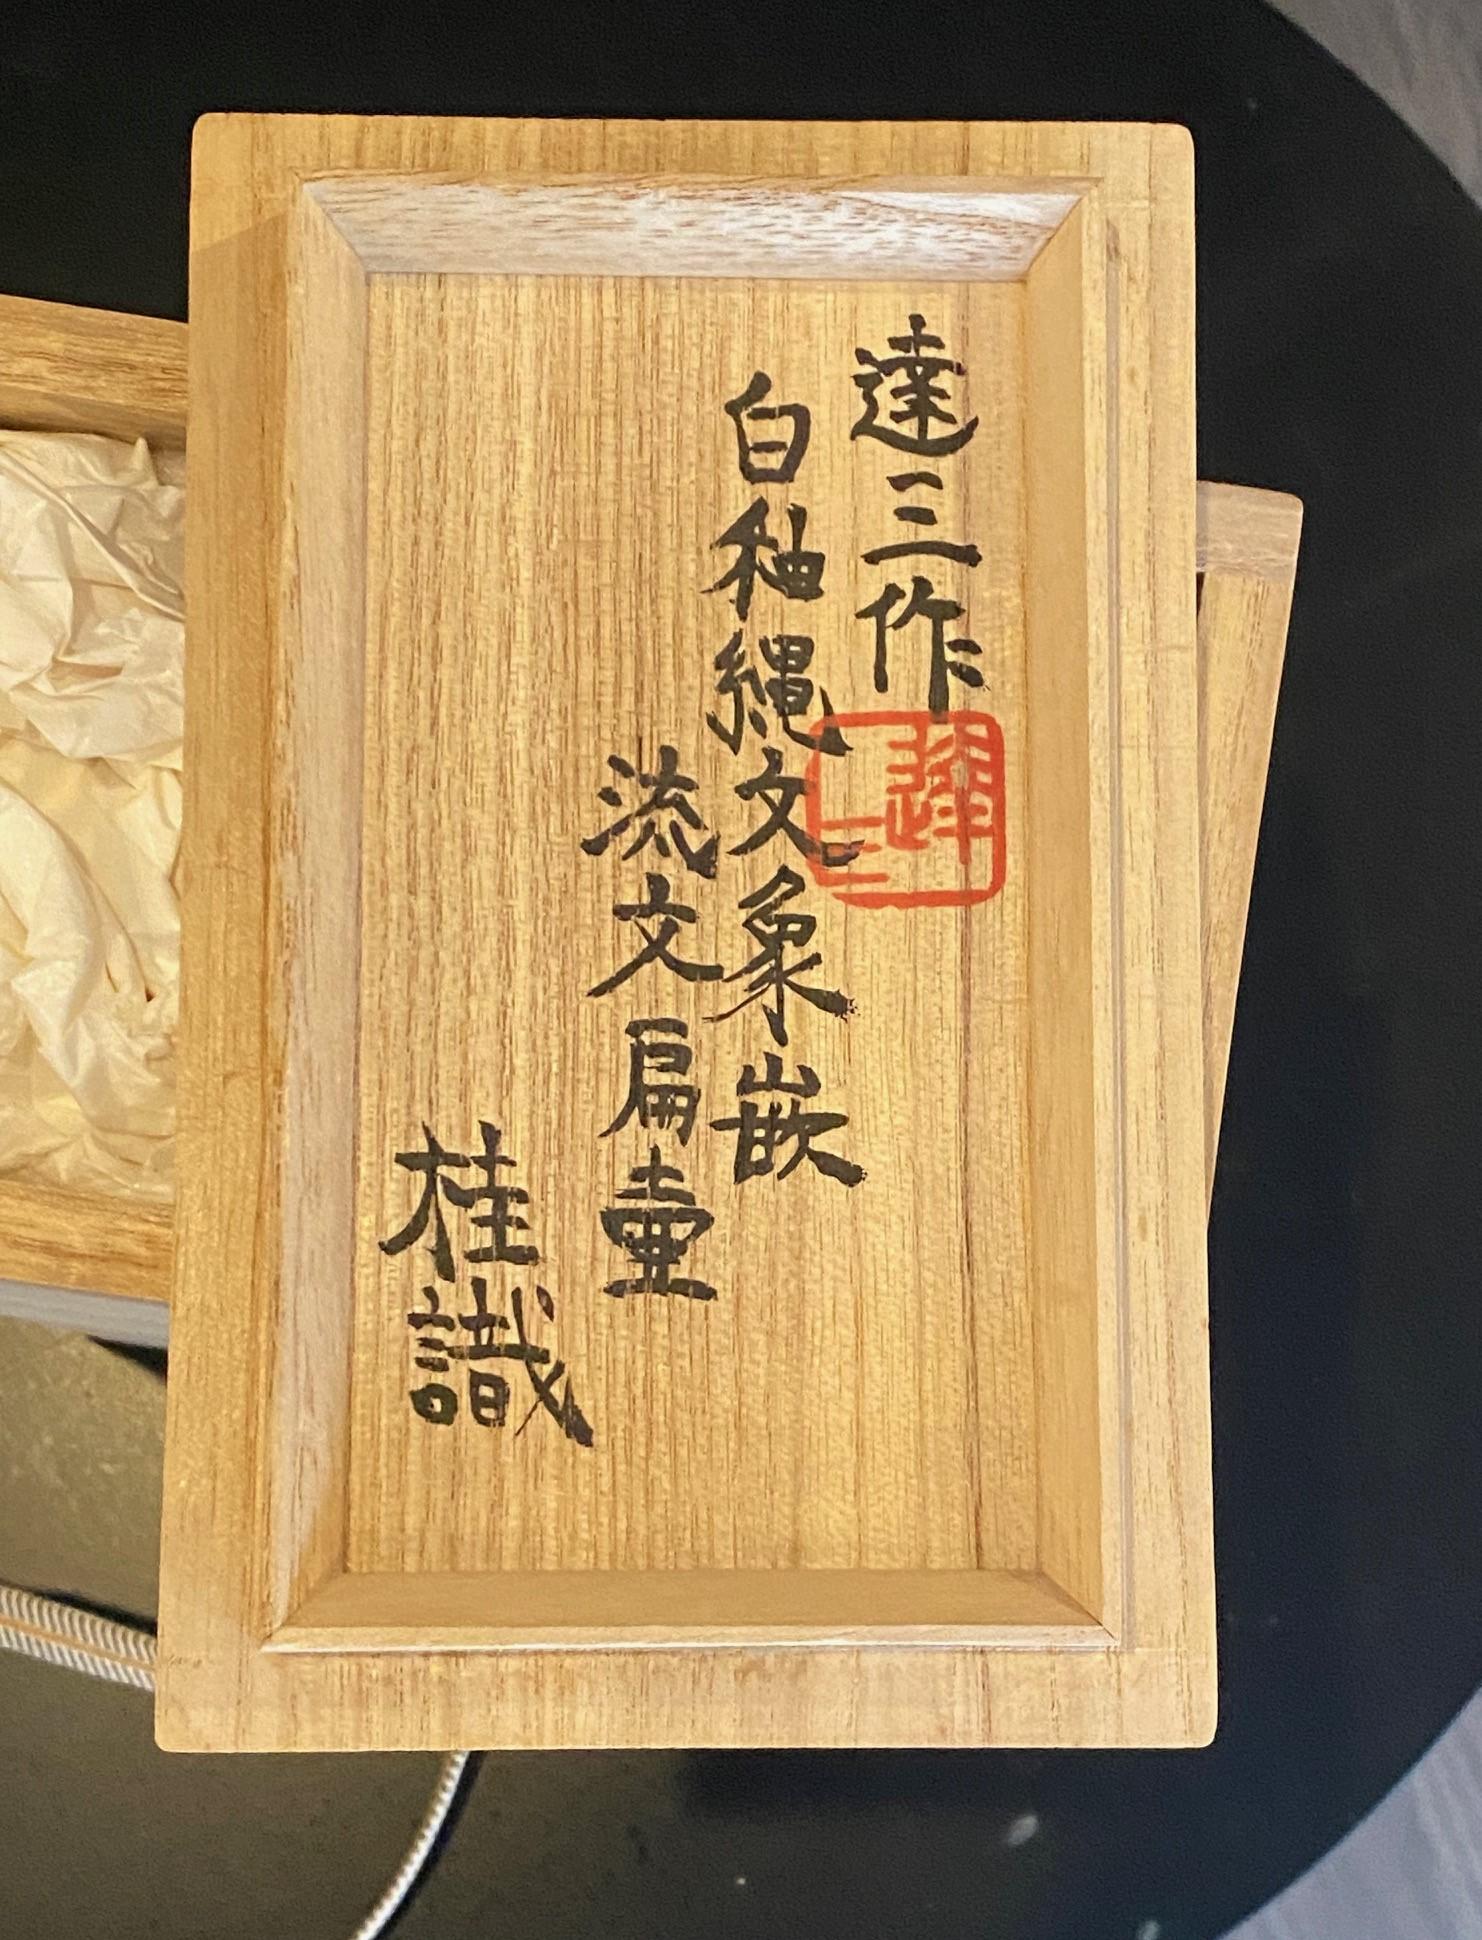 達三作
達三
白釉縄文象嵌
流文扁壷
桂識